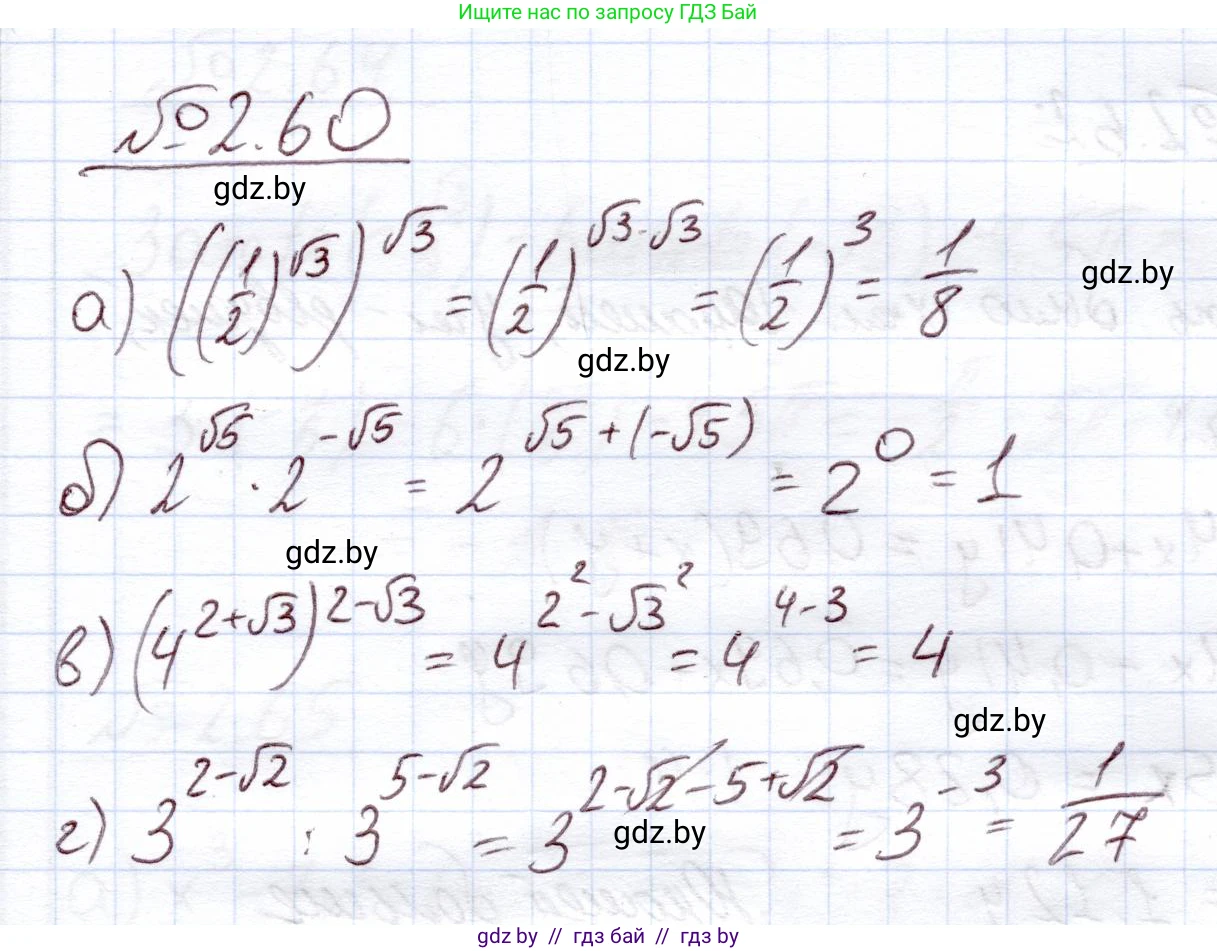 Ищите нас по запросу ГДЗ Бай
№2.60
gdz.by
а) ((1/2)^√3)^√3 = (1/2)^(√3·√3) = (1/2)^3 = 1/8
gdz.by
gdz.by
б) 2^√5 · 2^(-√5) = 2^(√5+(-√5)) = 2^0 = 1
gdz.by
в) (4^(2+√3))^(2-√3) = 4^(2²-√3²) = 4^(4-3) = 4
gdz.by
г) 3^(2-√2) : 3^(5-√2) = 3^(2-√2-5+√2) = 3^(-3) = 1/27
gdz.by
gdz.by // гдз бай // гдз by